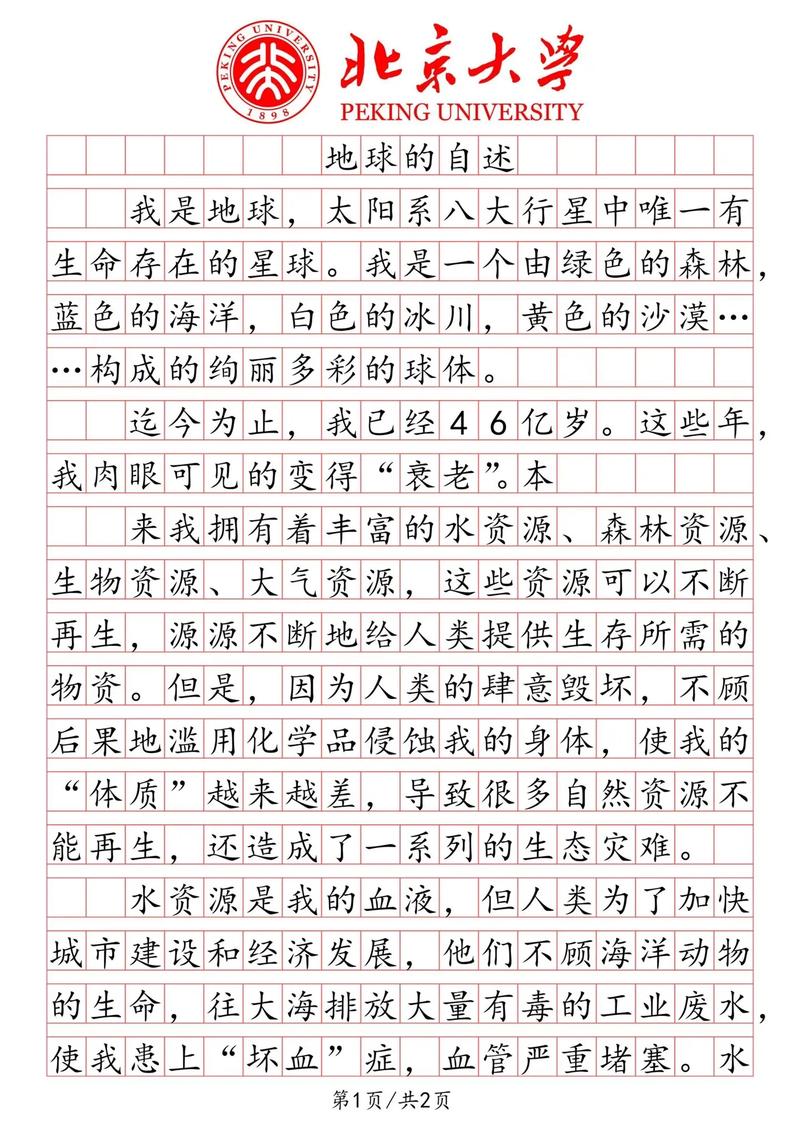 PEKING UNIVERSITY
1898
北京大学
PEKING UNIVERSITY
地球的自述
我是地球，太阳系八大行星中唯一有
生命存在的星球。我是一个由绿色的森林，
蓝色的海洋，白色的冰川，黄色的沙漠…
…构成的绚丽多彩的球体。
迄今为止，我已经46亿岁。这些年，
我肉眼可见的变得“衰老”。本
来我拥有着丰富的水资源、森林资源、
生物资源、大气资源，这些资源可以不断
再生，源源不断地给人类提供生存所需的
物资。但是，因为人类的肆意毁坏，不顾
后果地滥用化学品侵蚀我的身体，使我的
“体质”越来越差，导致很多自然资源不
能再生，还造成了一系列的生态灾难。
水资源是我的血液，但人类为了加快
城市建设和经济发展，他们不顾海洋动物
的生命，往大海排放大量有毒的工业废水，
使我患上“坏血”症，血管严重堵塞。水
第1页/共2页